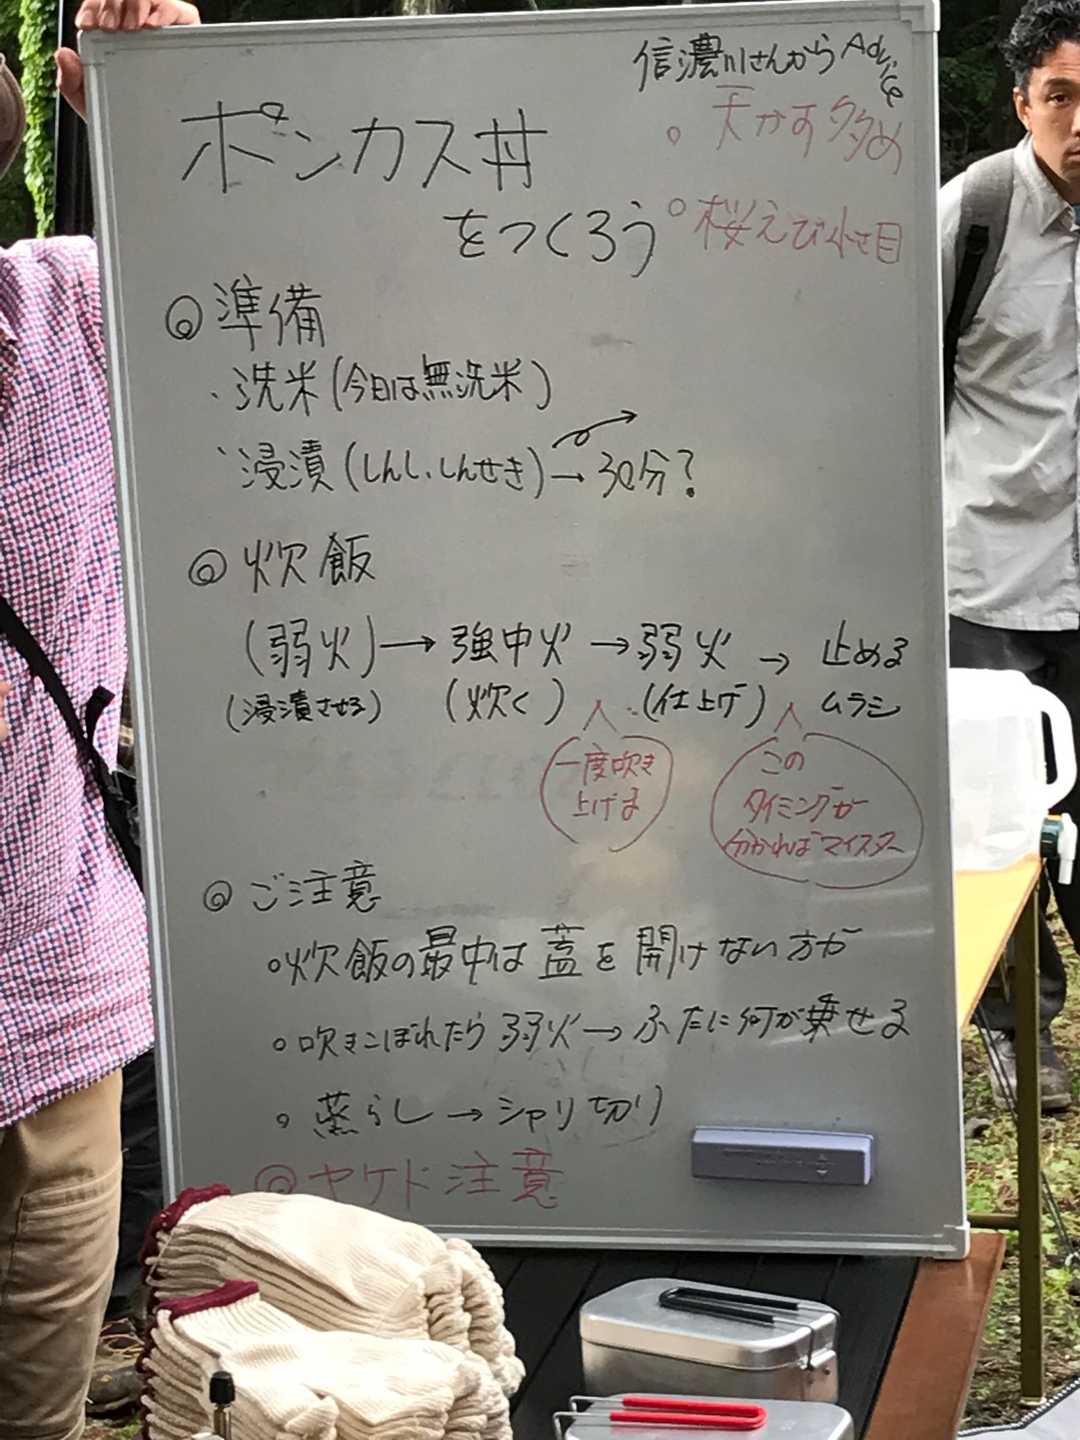 信濃川さんからAdvice
ポンカス丼
をつくろう
。天かす多め
。桜えび小さ目
◎準備
・洗米(今日は無洗米)
・浸漬(しんし、しんせき)→30分?
◎炊飯
(弱火)→強中火→弱火→止める
(浸漬させる) (炊く) (仕上げ) ムラシ
一度吹き
上げる
この
タイミングが
分かればマイスター
◎ご注意
。炊飯の最中は蓋を開けない方が
。吹きこぼれたら弱火→ふたに何が乗せる
。蒸らし→シャリ切り
◎ヤケド注意